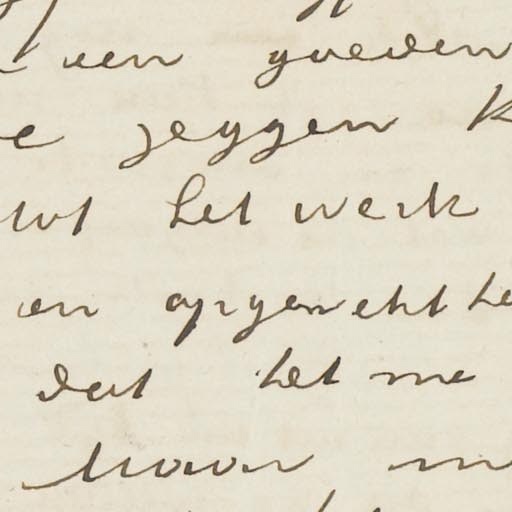 een goeden
zeggen
tot het werk
en opgewekthe
dat het me
Maar m